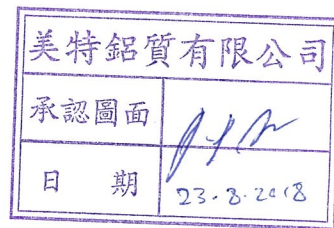 美特鋁質有限公司
承認圖面
日 期
23.8.2018